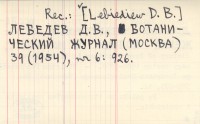 Rec.: [Lebiediew D. B.]
ЛЕБЕДЕВ Д.В., БОТАНИ-
ЧЕСКИЙ ЖУРНАЛ (МОСКВА)
39 (1954), nr 6: 926.